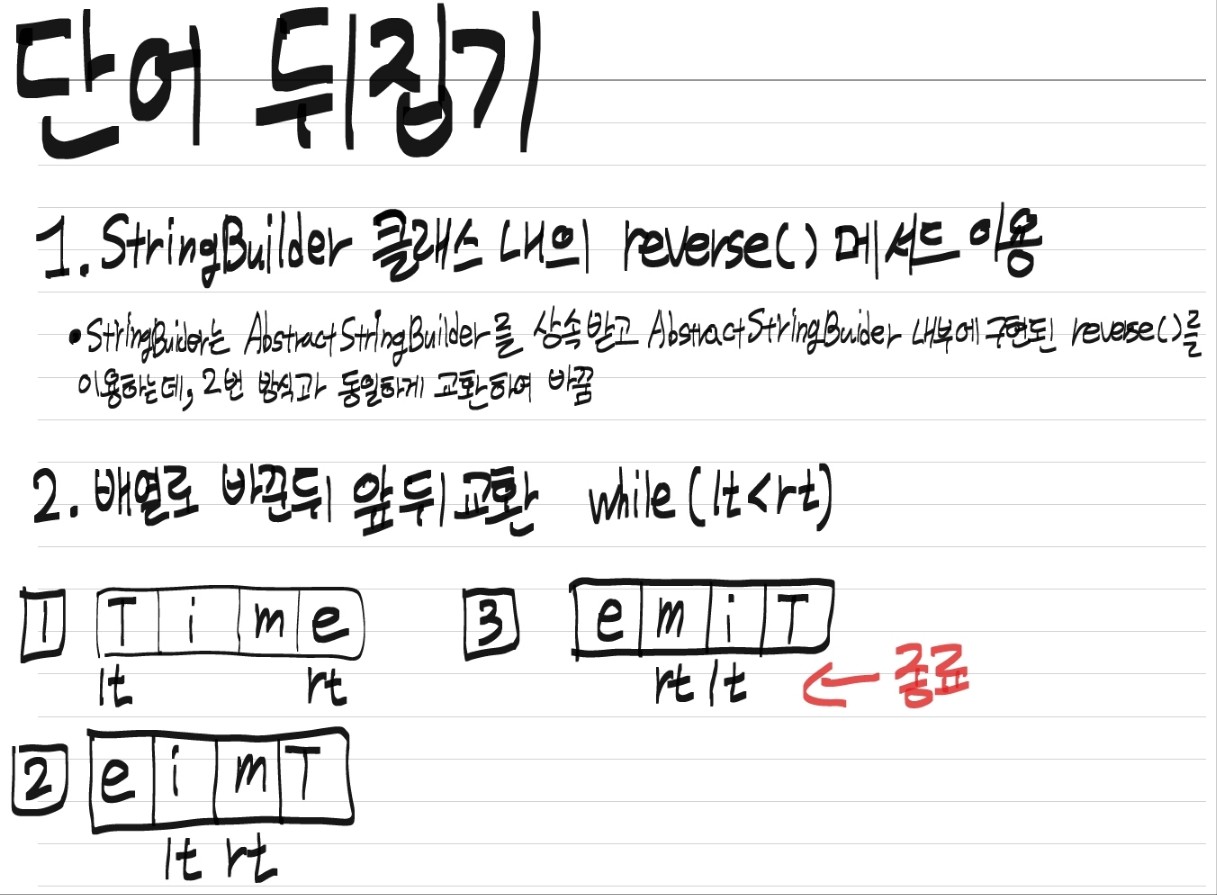 단어 뒤집기
1. StringBuilder 클래스 내의 reverse() 메서드 이용
• StringBuider는 AbstractStringBuilder를 상속받고 AbstractStringBuider 내부에 구현된 reverse()를
이용하는데, 2번 방식과 동일하게 교환하여 바꿈
2. 배열로 바꾼뒤 앞뒤 교환 while(lt<rt)
1 T i m e
lt rt
3 e m i T
rt lt ← 종료
2 e i m T
lt rt